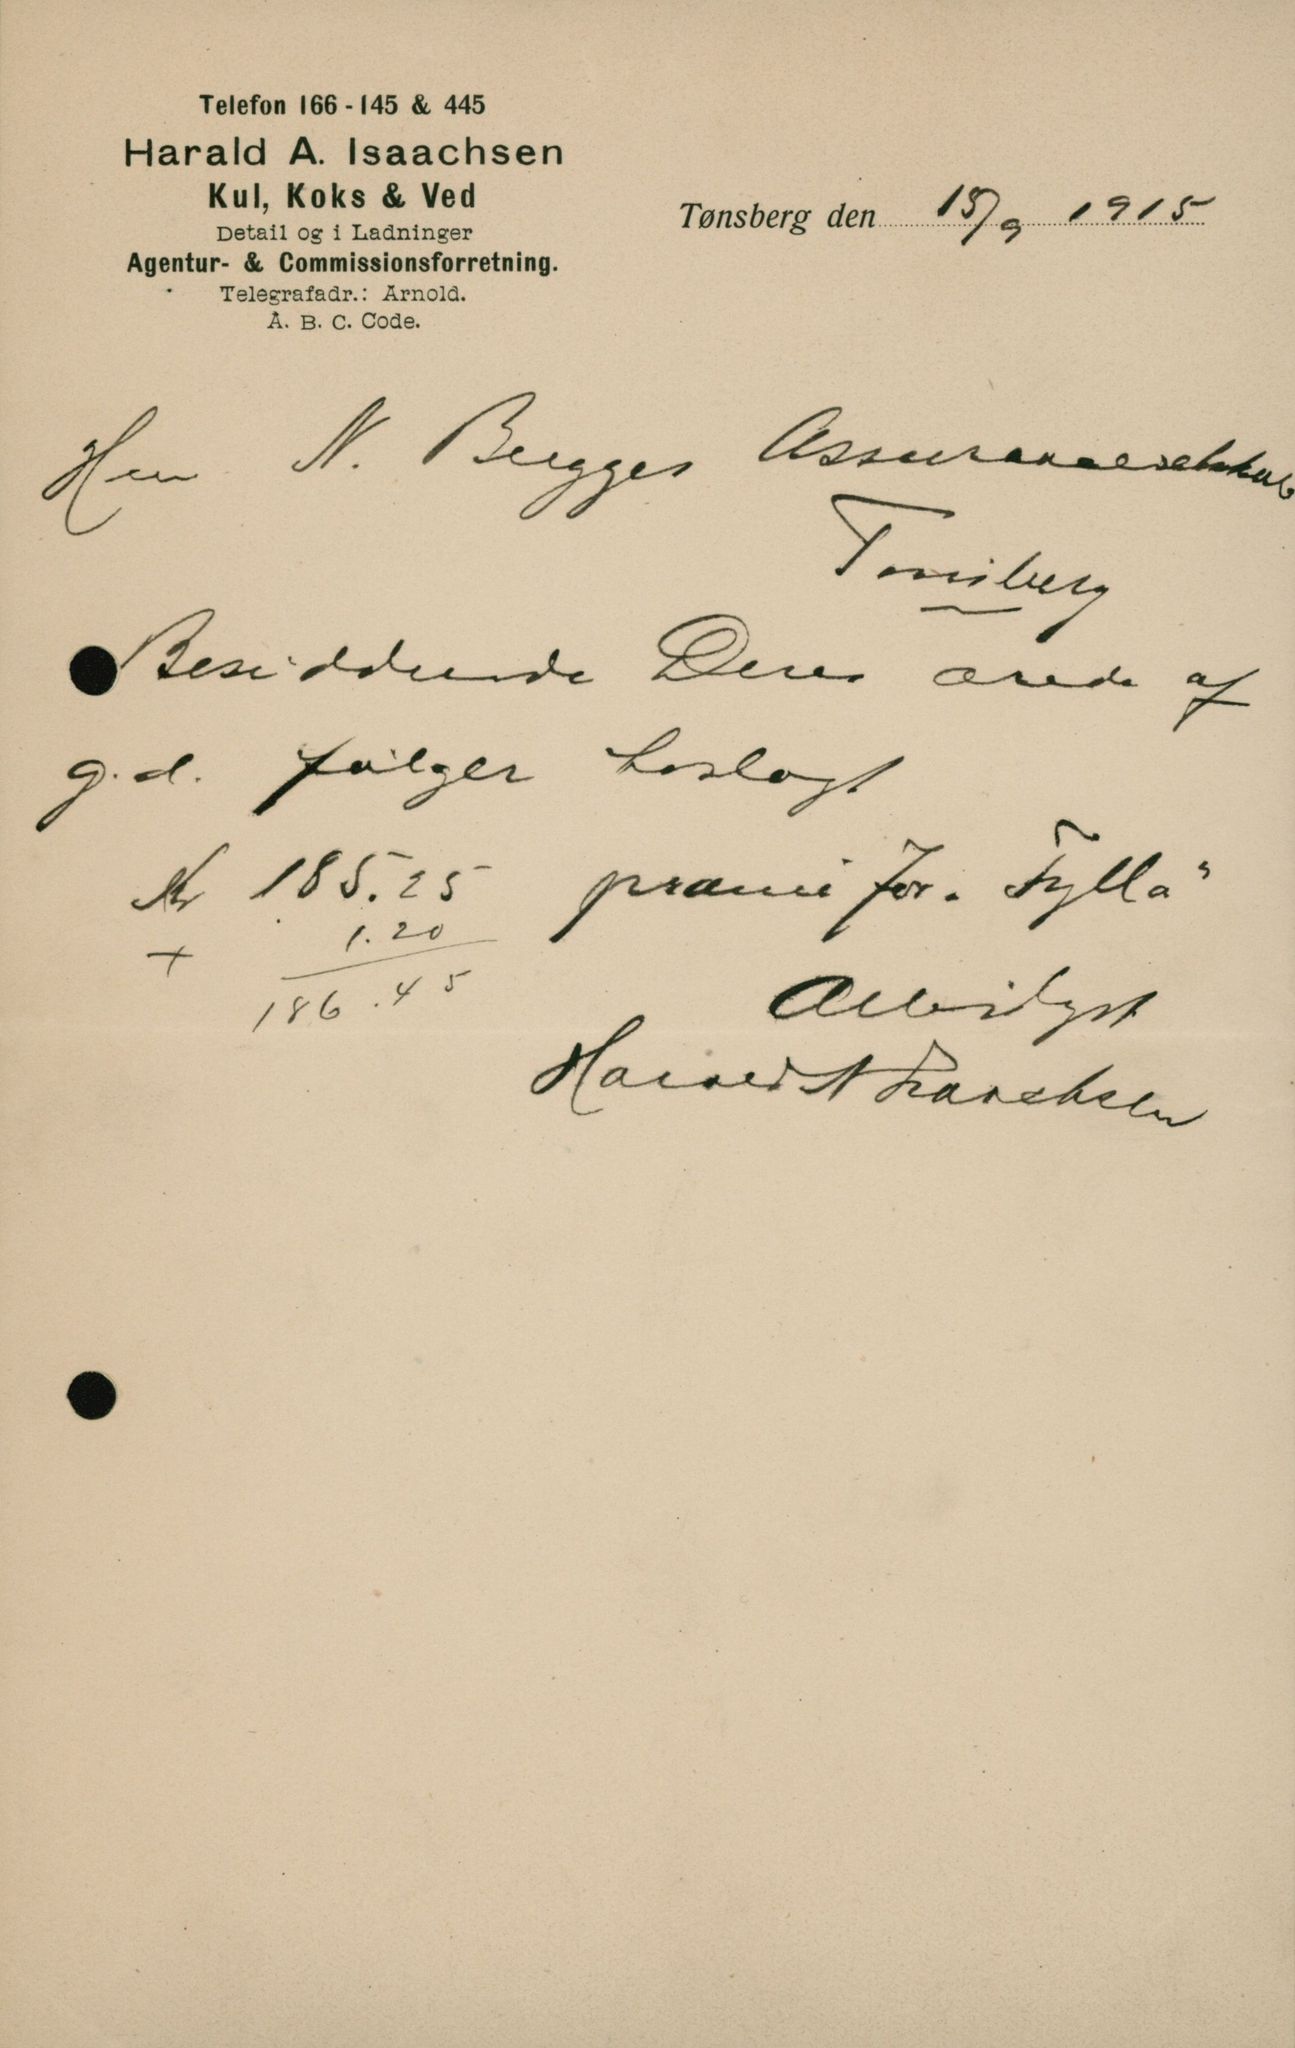 Telefon 166 - 145 & 445
Harald A. Isaachsen
Kul, Koks & Ved
Detail og i Ladninger
Agentur- & Commissionsforretning.
Telegrafadr.: Arnold.
A. B. C. Code.
Tønsberg den 15/9 1915
Herr N. Bugges Assuranceselskab
Tønsberg
Besiddende Deres ærede af
g.d. følger hoslagt
Kr 185.25 præmie for "Fylla"
+ 1.20
186.45
Ærbødigst
Harald A Isaachsen